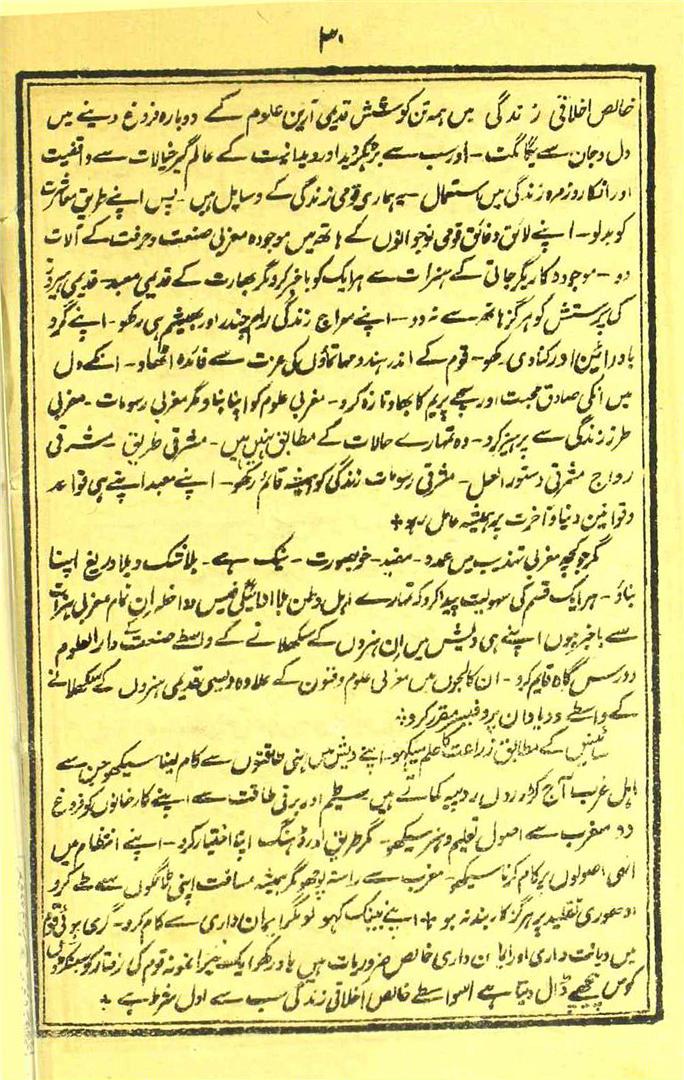 ۳۰
خالص اخلاقی زندگی میں ہمہ تن کوشش قدیمی آرین علوم کے دوبارہ فروغ دینے میں
دل و جان سے یگانگت - اور سب سے بڑھکر وید اور ویدانت کے عالم گیر خیالات سے واقفیت
اور انکا روزمرہ زندگی میں استعمال - یہ ہماری قومی زندگی کے وسایل ہیں - پس اپنے طریق معاشرت
کو بدلو - اپنے لائق و فائق قومی نوجوانوں کے ہاتھ میں موجودہ مغربی صنعت و حرفت کے آلات
دو - موجودہ کاریگر جاتی کے ہنرات سے ہر ایک کو باخبر کرو مگر بھارت کے قدیمی معبد - قدیمی ہیروز
کی پرستش کو ہرگز ہاتھ سے نہ دو - اپنے معراج زندگی رام چندر اور بھیشم ہی رکھو - اپنے گرو
بادرائین اور کناد ہی رکھو - قوم کے اندر ہندو مہاتماؤں کی عزت سے فائدہ اٹھاؤ - انکے دل
میں انکی صادق محبت اور سچے پریم کا بھاو تازہ کرو - مغربی علوم کو اپنا بناو مگر مغربی رسومات - مغربی
طرز زندگی سے پرہیز کرو - وہ تمہارے حالات کے مطابق نہیں ہیں - مشرقی طریق - مشرقی
رواج مشرقی دستور العمل - مشرقی رسومات زندگی کو ہمیشہ قائم رکھو - اپنے معبد اپنے ہی قواعد
و قوانین دنیا و آخرت پر ہمیشہ عامل رہو +
مگر جو کچھ مغربی تہذیب میں عمدہ - مفید - خوبصورت - نیک ہے - بلا شک و بلا دریغ اپنا
بناؤ - ہر ایک قسم کی سہولیت پیدا کرو کہ تمہارے اہل وطن بلا ادائیگی فیس داخلہ ان تمام مغربی ہنرات
سے باخبر ہوں اپنے ہی دیش میں ان ہنروں کے سکھلانے کے واسطے صنعت کے دارالعلوم
و درس گاہ قایم کرو - ان کالجوں میں مغربی علوم و فنون کے علاوہ دیسی قدیمی ہنروں کے سکھلانے
کے واسطے ودیاوان پروفیسر مقرر کرو +
سائینس کے مطابق زراعت کا علم سیکھو - اپنے دیش میں اپنی طاقتوں سے کام لینا سیکھو جن سے
اہل غرب آج کڑوروں روپیہ کماتے ہیں سیٹم اور برقی طاقت سے اپنے کارخانوں کو فروغ
دو مغرب سے اصول تعلیم و ہنر سیکھو - مگر طریق اور ڈہنگ اپنا اختیار کرو - اپنے انتظام میں
انہی اصولوں پر کام کرنا سیکھو - مغرب سے راستہ پوچھو مگر ہمیشہ مسافت اپنی ٹانگوں سے طے کرو
ادھوری تقلید پر ہرگز کاربند نہ ہو + اپنے بینک کھولو مگر ایمان داری سے کام کرو - گری ہوئی قوم
میں دیانت داری اور ایمان داری خالص ضروریات ہیں یاد رکھو ایک برا نمونہ قوم کی رفتار کو سینکڑوں
کوس پیچھے ڈال دیتا ہے اسواسطے خالص اخلاقی زندگی سب سے اول شرط ہے +